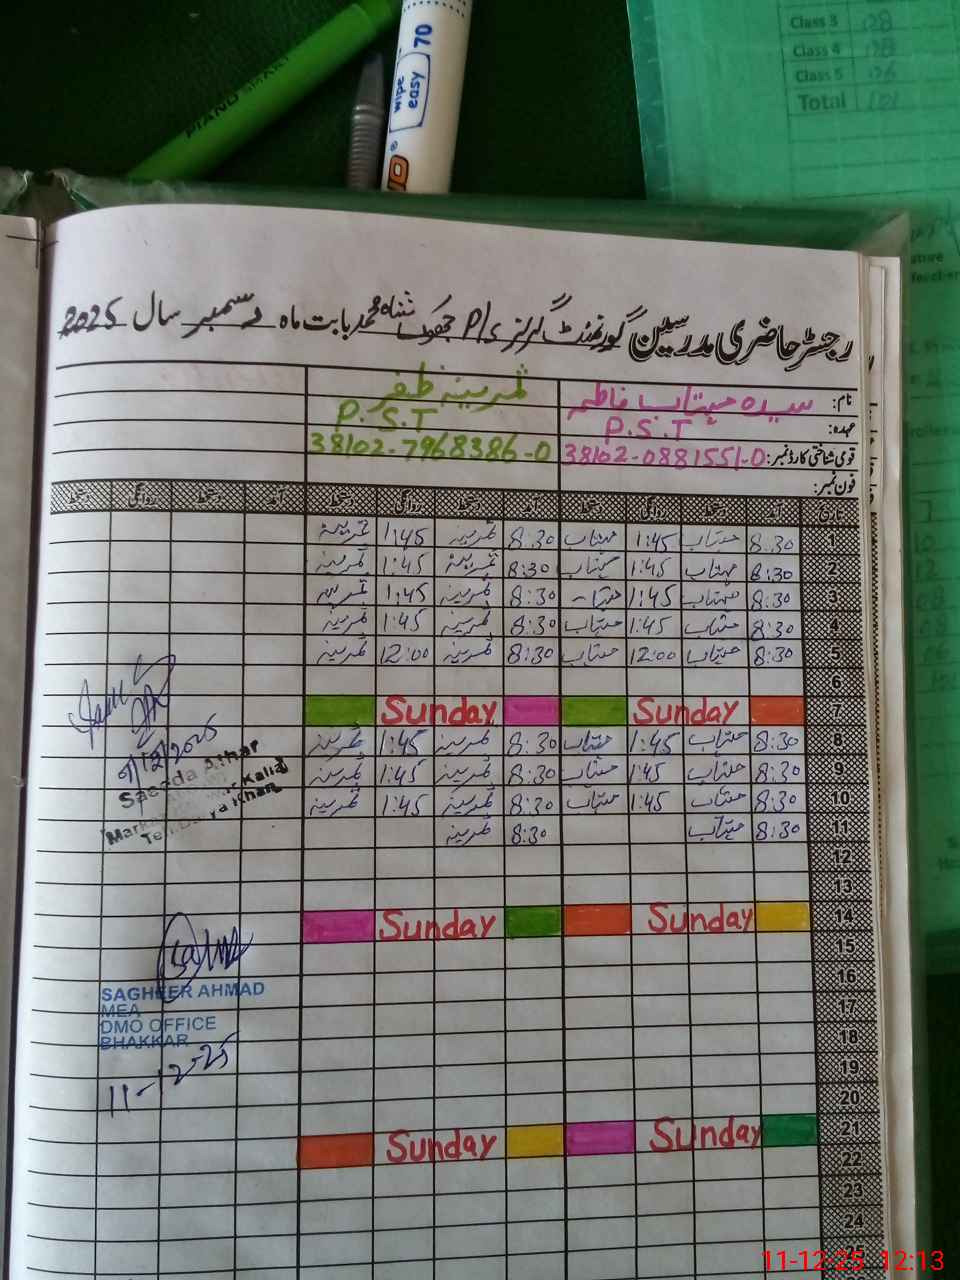 PIANO SMART
wipe easy 70
Class 3 08
Class 4
Class 5 06
Total 101
رجسٹر حاضری مدرسین گورنمنٹ گرلز P/S جھوک شاہ محمد بابت ماہ دسمبر سال 2025
نام: سیدہ مہتاب فاطمہ ثمرینہ ظفر
عہدہ: P.S.T P.S.T
قومی شناختی کارڈ نمبر: 38102-0881551-0 38102-7968386-0
فون نمبر:
تاریخ آمد دستخط روانگی دستخط آمد دستخط روانگی دستخط آمد دستخط روانگی دستخط
1 8:30 مہتاب 1:45 مہتاب 8:30 ثمرینہ 1:45 ثمرینہ
2 8:30 مہتاب 1:45 مہتاب 8:30 ثمرینہ 1:45 ثمرینہ
3 8:30 مہتاب 1:45 مہتاب 8:30 ثمرینہ 1:45 ثمرینہ
4 8:30 مہتاب 1:45 مہتاب 8:30 ثمرینہ 1:45 ثمرینہ
5 8:30 مہتاب 12:00 مہتاب 8:30 ثمرینہ 12:00 ثمرینہ
6
7 Sunday Sunday
8 8:30 مہتاب 1:45 مہتاب 8:30 ثمرینہ 1:45 ثمرینہ
9 8:30 مہتاب 1:45 مہتاب 8:30 ثمرینہ 1:45 ثمرینہ
10 8:30 مہتاب 1:45 مہتاب 8:30 ثمرینہ 1:45 ثمرینہ
11 8:30 مہتاب 8:30 ثمرینہ
12
13
14 Sunday Sunday
15
16
17
18
19
20
21 Sunday Sunday
22
23
24
25
9/12/2025
Saeeda Athar
SAGHEER AHMAD
MEA
DMO OFFICE
BHAKKAR
11-12-25
11-12-25 12:13